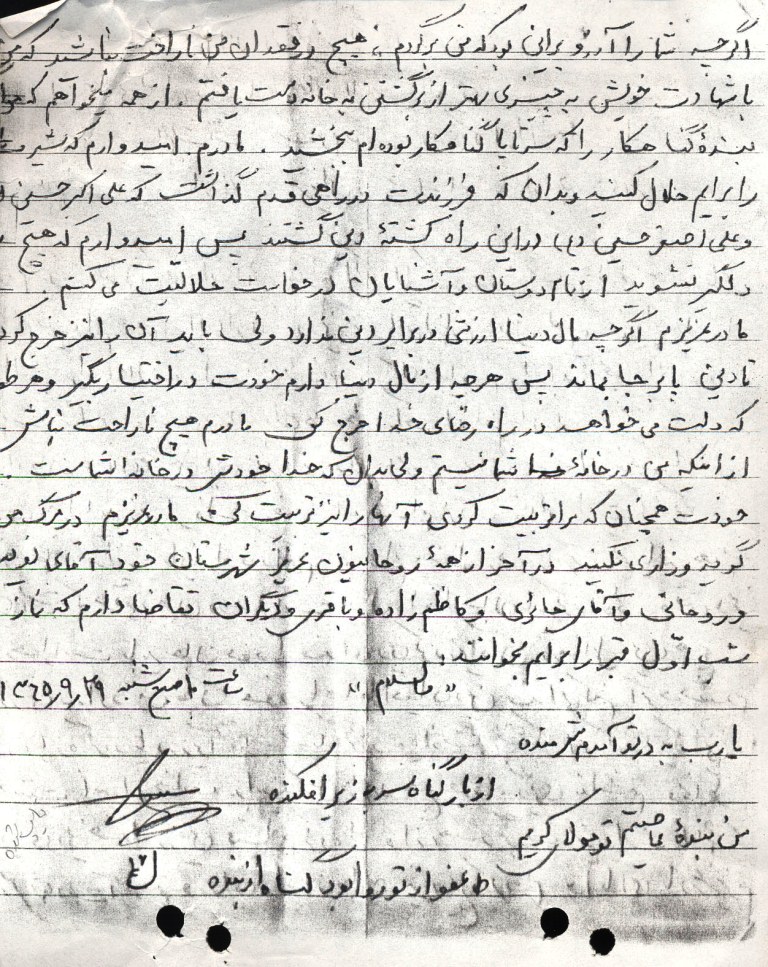 اگرچه شما را آرزو براین بود که من برگردم، هیچ در فقدان من ناراحت نباشید که من
با شهادت خویش به چیزی بهتر از برگشتن به خانه دست یافتم. از همه میخواهم که
بندهٔ گناهکار را که سرتاپا گناهکار بوده‌ام ببخشید. مادرم امیدوارم که شیرت
را برایم حلال کنید و بدان که فرزندت در راهی قدم گذاشت که علی اکبر حسین
و علی اصغر حسین (ع) در این راه کشتهٔ دین گشتند پس امیدوارم که هیچ
دلگیر نشوید از تمام دوستان و آشنایان درخواست حلالیت می‌کنم.
مادر عزیزم اگرچه مال دنیا ارزشی در برابر دین ندارد ولی باید آن را نیز خرج کرد
تا دین پابرجا بماند پس هرچه از مال دنیا دارم خودت در اختیار بگیر و هر طور
که دلت می‌خواهد در راه رضای خدا خرج کن. مادرم هیچ ناراحت نباش
از اینکه من در خانهٔ شما نیستم ولی بدان که خدا خودش در خانه شماست.
خودت همچنان که مرا تربیت کردی آنها را نیز تربیت کن. مادر عزیزم در مرگ من
گریه و زاری نکنید در آخر از همهٔ روحانیون عزیز شهرستان خود آقای
و روحانی و آقای حائری و کاظم زاده و باقری و دیگران تقاضا دارم که نماز
شب اوّل قبر را برایم بخوانند.
«والسلام» ساعت ۱۰ صبح شنبه ۱۳۶۵/۹/۲۹
یا رب به در تو آمدم شرمنده
از بار گناه سر به زیر افکنده
من بندهٔ عاصیم تو مولای کریم
عفو از تو روا بود گناه از بنده